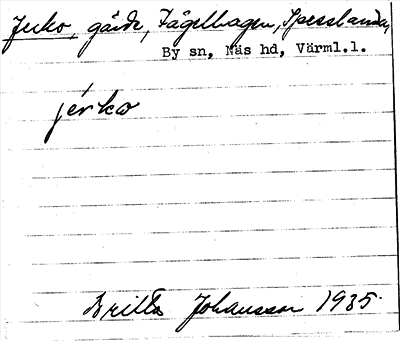 Jerko, gärde, Fågelhagen, Spesslanda,
By sn, Näs hd, Värml.l.
jerko
Britta Johansson 1935.